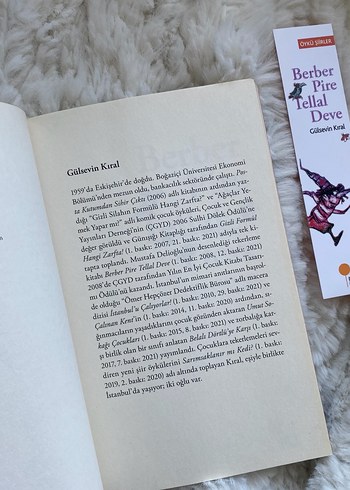 Gülsevin Kıral
1959'da Eskişehir'de doğdu. Boğaziçi Üniversitesi Ekonomi
Bölümü'nden mezun oldu, bankacılık sektöründe çalıştı. Pos-
ta Kutumdan Sihir Çıktı (2006) adlı kitabının ardından yaz-
dığı "Gizli Silahın Formülü Hangi Zarfta?" ve "Ağaçlar Ye-
mek Yapar mı?" adlı komik çocuk öyküleri, Çocuk ve Gençlik
Yayınları Derneği'nin (ÇGYD) 2006 Sulhi Dölek Ödülü'ne
değer görüldü ve Günışığı Kitaplığı tarafından Gizli Formül
Hangi Zarfta? (1. baskı: 2007, 21. baskı: 2021) adıyla tek ki-
tapta toplandı. Mustafa Delioğlu'nun desenlediği tekerleme
kitabı Berber Pire Tellal Deve (1. baskı: 2008, 12. baskı: 2021)
de 2008'de ÇGYD tarafından Yılın En İyi Çocuk Kitabı Tasarı-
mı Ödülü'nü kazandı. İstanbul'un mimari anıtlarının başrol-
de olduğu "Ömer Hepçözer Dedektiflik Bürosu" adlı macera
dizisi İstanbul'u Çalıyorlar! (1. baskı: 2010, 29. baskı: 2021) ve
Çalınan Kent'in (1. baskı: 2014, 11. baskı: 2020) ardından, sı-
ğınmacıların yaşadıklarını çocuk gözünden aktaran Umut So-
kağı Çocukları (1. baskı: 2015, 8. baskı: 2021) ve zorbalığa kar-
şı birlik olan bir sınıfı anlatan Belalı Dörtlü'ye Karşı (1. baskı:
2017, 7. baskı: 2021) yayımlandı. Çocuklara tekerlemeleri sev-
diren yeni şiir öykülerini Sarımsaklanır mı Kedi? (1. baskı:
2019, 2. baskı: 2020) adı altında toplayan Kıral, eşiyle birlikte
İstanbul'da yaşıyor; iki oğlu var.
ÖYKÜ ŞİİRLER
Berber
Pire
Tellal
Deve
Gülsevin Kıral